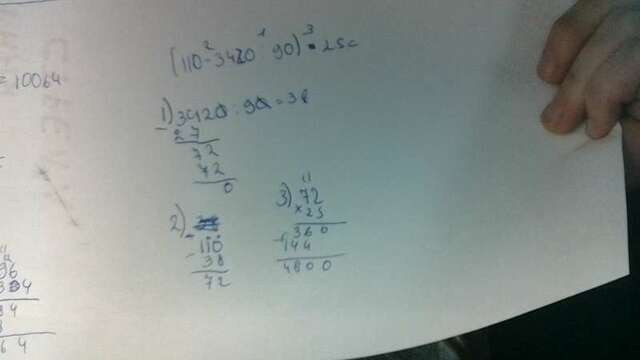 = 10064
2 1 3
(110-3420 : 90) · 25=
1) 3420 : 90 = 38
- 27
72
72
0
2)
- 110
38
72
3) 72
× 25
360
144
4800
96
64